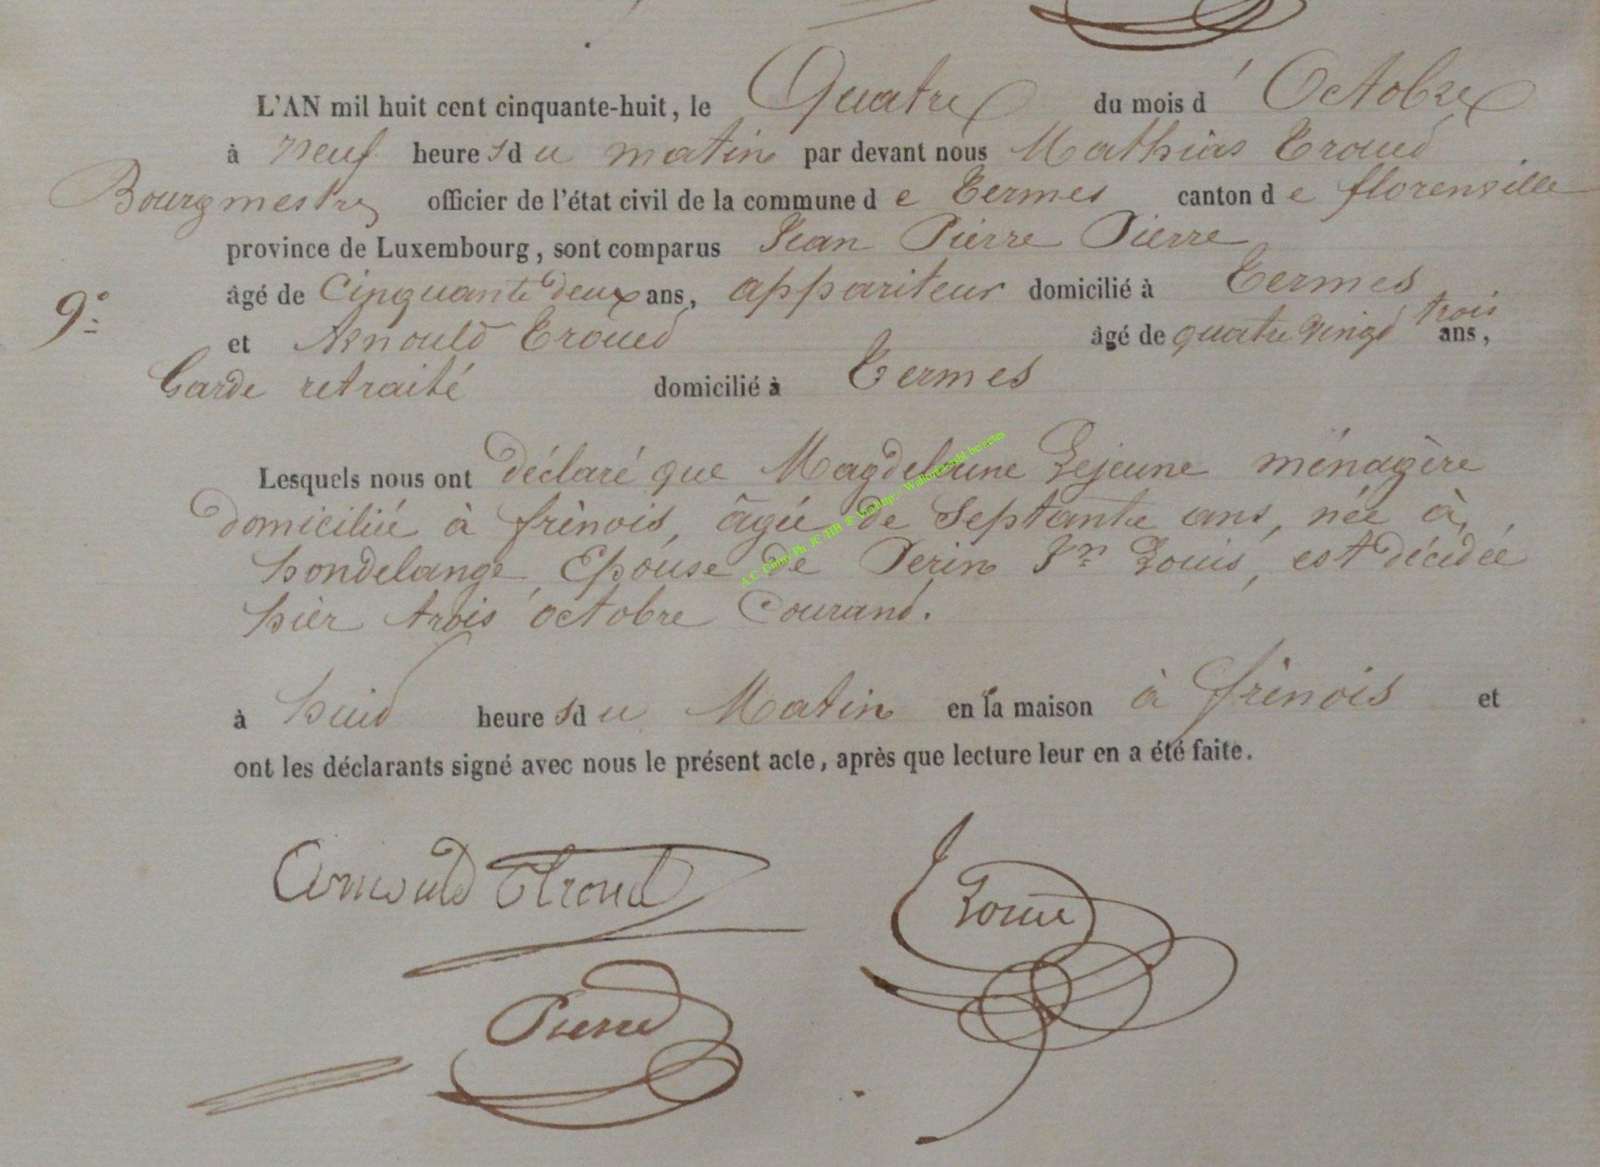 L'AN mil huit cent cinquante-huit, le Quatre du mois d'Octobre
à neuf heures du matin par devant nous Mathias Troud
Bourgmestre officier de l'état civil de la commune de Termes canton de florenville
province de Luxembourg, sont comparus Jean Pierre Pierre
9°
âgé de Cinquante deux ans, appariteur domicilié à Termes
et Arnould Troud âgé de quatre vingt trois ans,
Garde retraité domicilié à Termes
Lesquels nous ont déclaré que Magdelaine Lejeune ménagère
domiciliée à frênois, âgée de Septante ans, née à
hondelange, Epouse de Perin Jn Louis, est décidée
hier trois octobre Courant.
à huid heures du Matin en la maison à frênois et
ont les déclarants signé avec nous le présent acte, après que lecture leur en a été faite.
Arnould Troud
Pierre